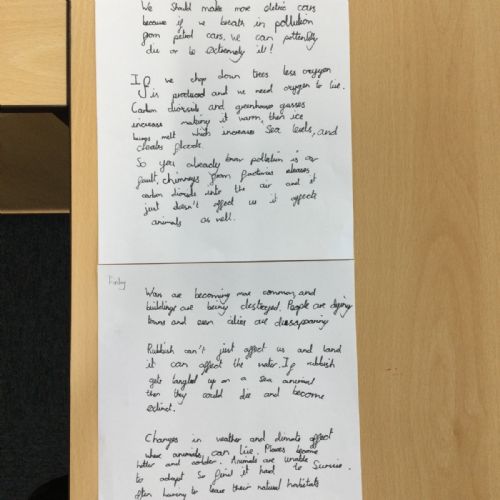 We should make more eletric cars
because if we breath in pollution
from petrol cars. We can potentialy
die or be extremely ill!
If we chop down trees less oxygen
is produced and we need oxygen to live.
Carbon dioxide and greenhouse gasses
increase making it warm, then ice
bergs melt which increases sea levels, and
cheats floods.
So you already know pollution is our
fault, chimneys from factories releases
carbon dioxide into the air and it
just doesn't affect us it affects
animals as well.
Finlay
Wars are becoming more common, and
buildings are being destroyed. People are dying
towns and even cities are dissapearing
Rubbish can't just affect us and land
it can affect the water. If rubbish
gets tangled up on a sea animal
then they could die and become
extinct.
Changes in weather and climate affect
where animals can live. Places become
hotter and colder. Animals are unable
to adapt so find it hard to survive.
Often having to leave their natural habitats